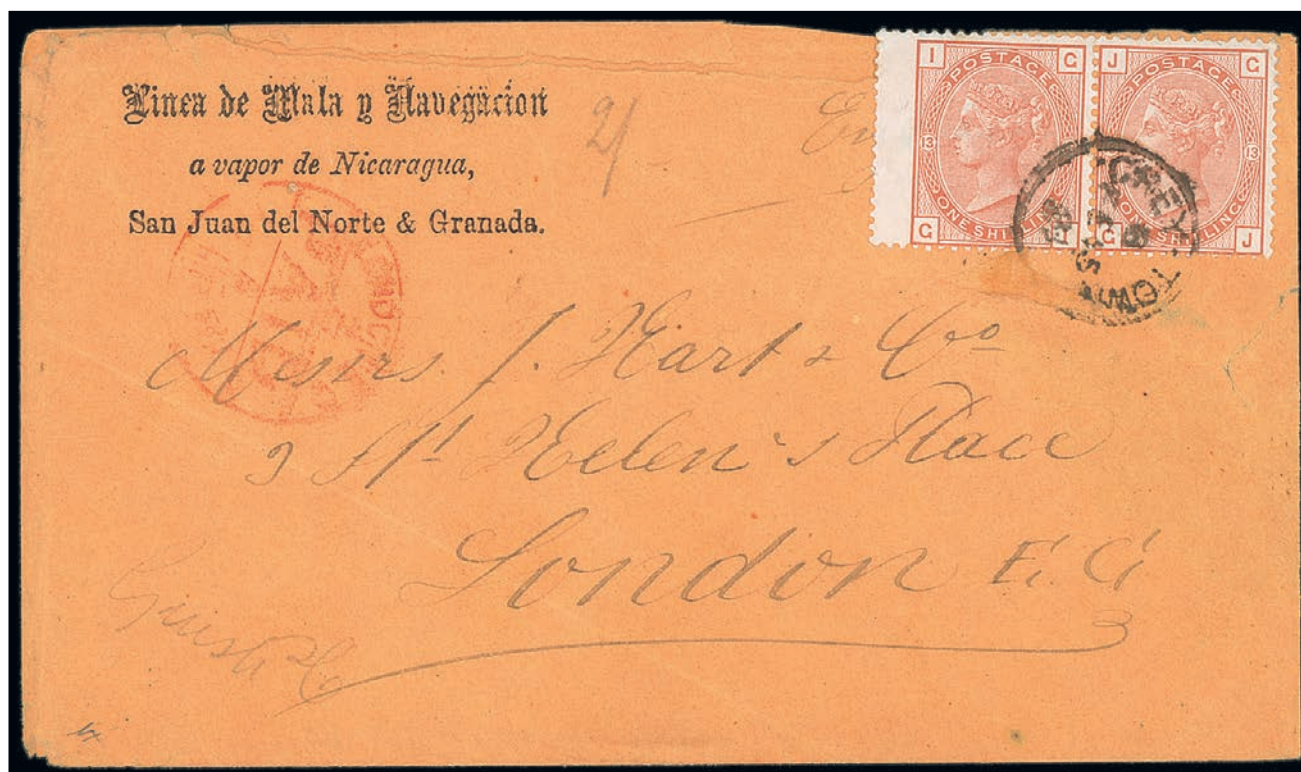 Linea de Mala y Navegacion
a vapor de Nicaragua,
San Juan del Norte & Granada.
2/
I G
POSTAGE
13 13
ONE SHILLING
G I
J G
POSTAGE
13
ONE SHILLING
G J
GREY-TOWN
Messrs. J. Hart & Co
3 St. Helen's Place
London E.C.